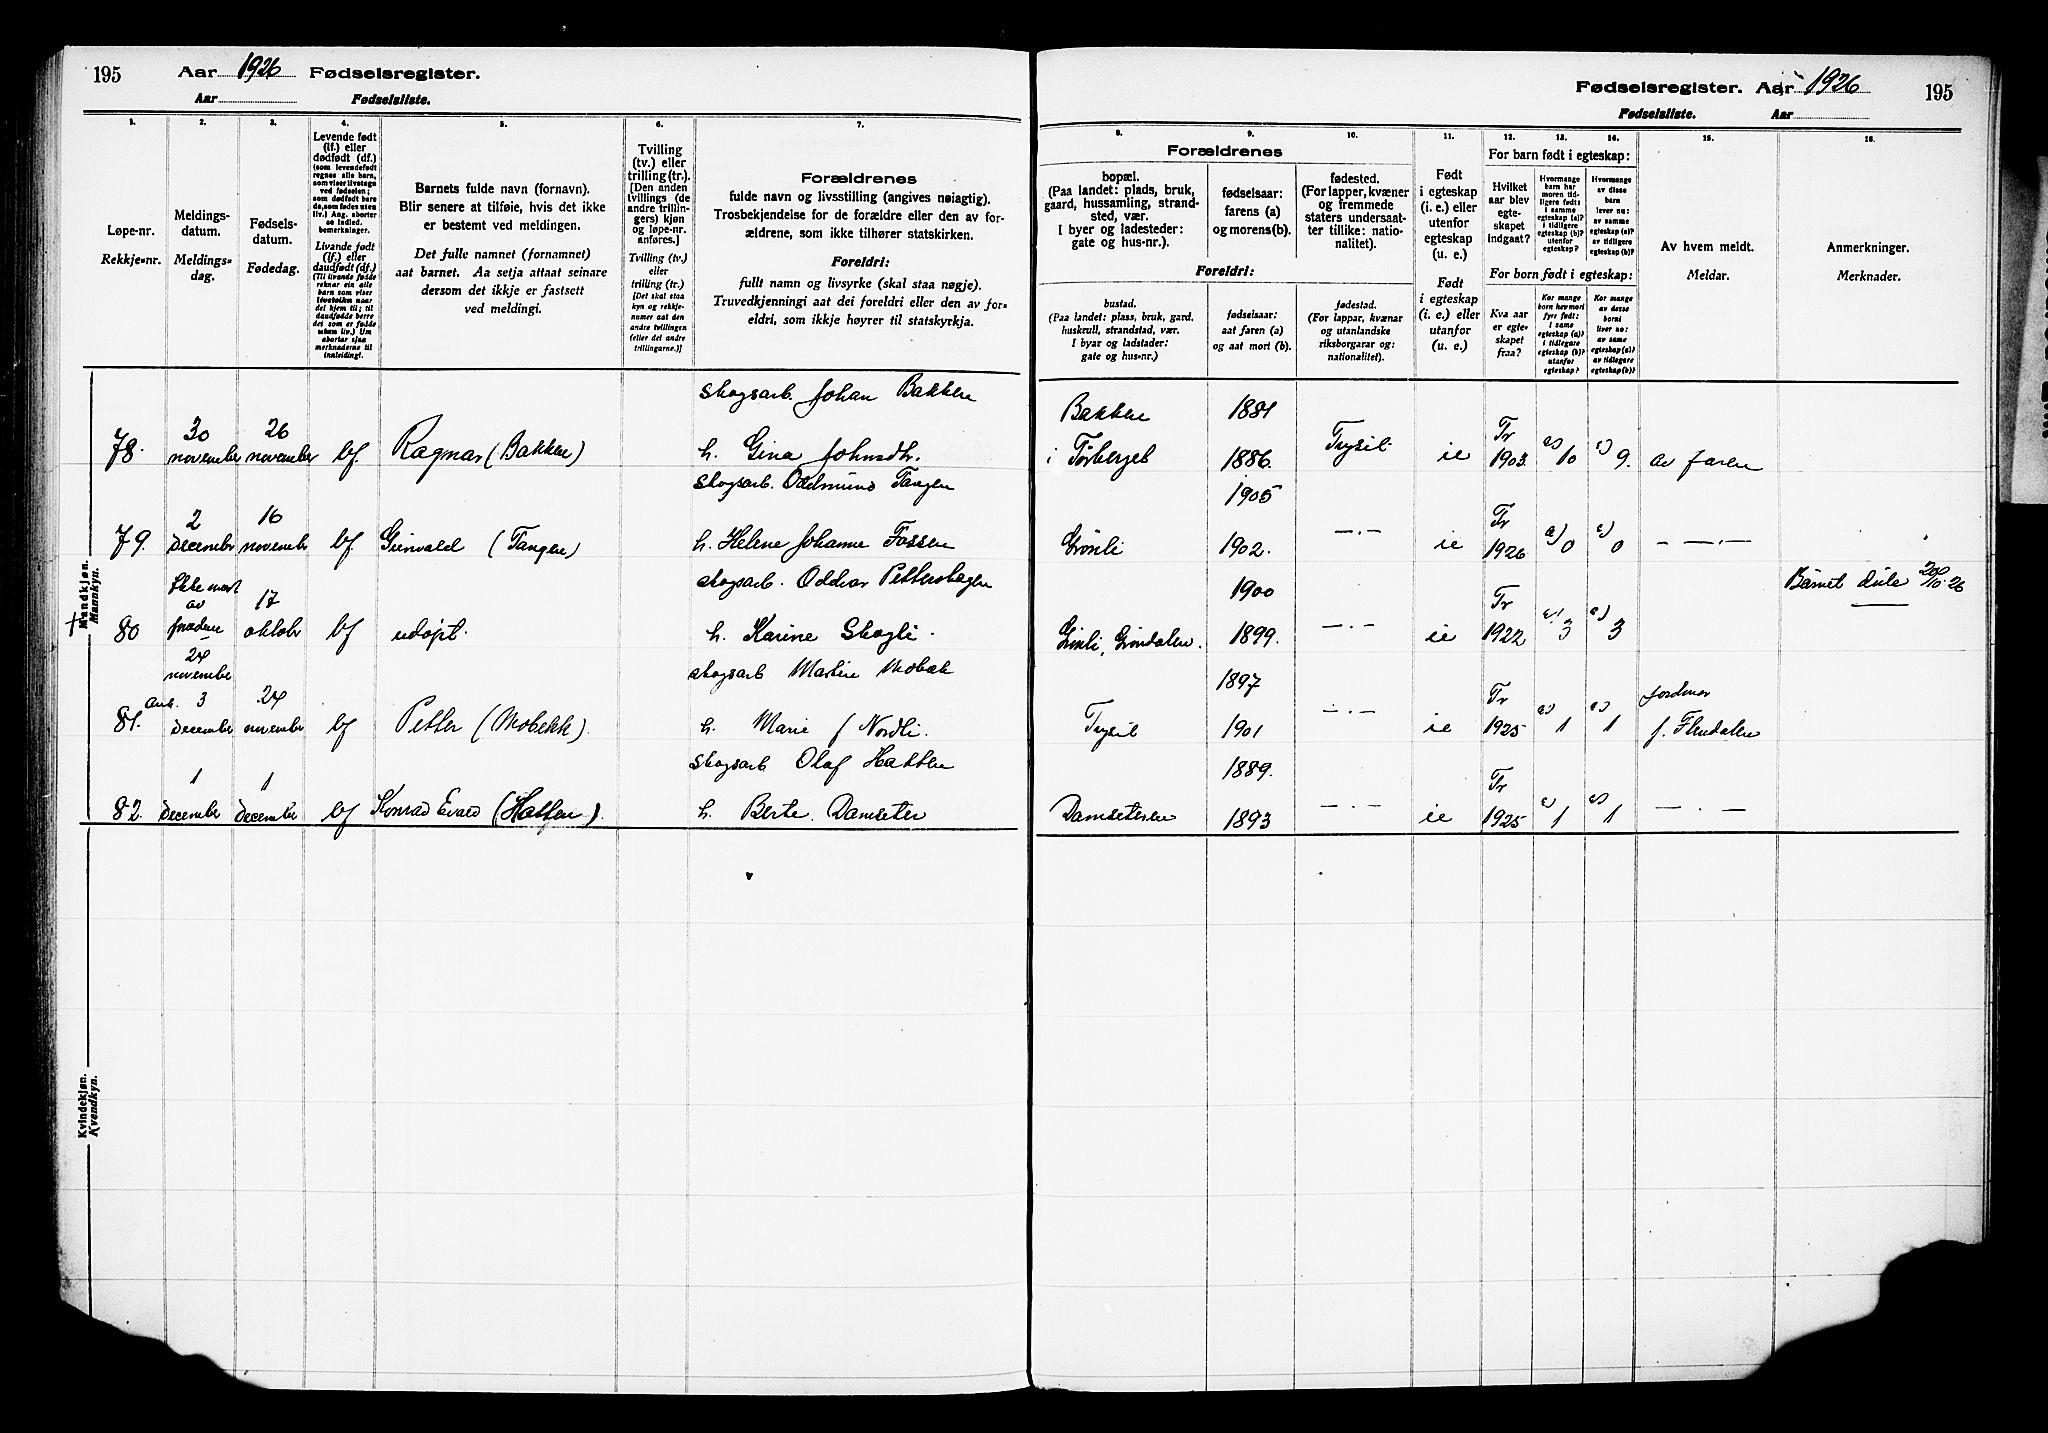 195 Aar 1926 Fødselsregister.
Aar Fødselsliste.
1.
Løpe-nr.
Rekkje-nr.
2.
Meldings-
datum.
Meldings-
dag.
3.
Fødsels-
datum.
Fødedag.
4.
Levende født
(lf.) eller
dødfødt (df.)
(som levendefødt
regnes alle barn,
som viser livstegn
ved fødselen;
som dødfødt bare
de, som fødes uten
liv.) Ang. aborter
se indled.
bemerkninger.
Livande født
(lf.) eller
daudfødt (df.)
5.
Barnets fulde navn (fornavn).
Blir senere at tilføie, hvis det ikke
er bestemt ved meldingen.
Det fulle namnet (fornamnet)
aat barnet. Aa setja attaat seinare
dersom det ikkje er fastsett
ved meldingi.
6.
Tvilling
(tv.) eller
trilling (tr.).
[Den anden
tvillings (de
andre trillin-
gers) kjøn
og løpe-nr.
anføres.]
Tvilling (tv.)
eller
trilling (tr.)
[Det skal staa
kyn og rekkje-
numer aat den
andre tvillingen
(eller dei andre
trillingarne.)]
7.
Forældrenes
fulde navn og livsstilling (angives nøiagtig).
Trosbekjendelse for de forældre eller den av for-
ældrene, som ikke tilhører statskirken.
Foreldri:
fullt namn og livsyrke (skal staa nøgje).
Truvedkjenningi aat dei foreldri eller den av for-
eldri, som ikkje høyrer til statskyrkja.
Mandkjøn.
Mannkyn.
78.
30
november
26
november
lf.
Ragnar (Bakken)
skogsarb. Johan Bakken
h. Gina Johnsdh.
79.
2
december
16
november
lf.
Gunvald (Tangen)
skogsarb. Oddmund Tangen
h. Helene Johanne Fossen
80
Ikke meldt
av
24
november
17
oktober
lf
udøpt.
skogsarb. Oddvar Petterskogen
h. Karine Skogli.
81.
anm. 3
december
24
november
lf
Petter (Mobekk).
skogsarb Martin Mobæk
h. Marie f Nordli.
82.
1
december
1
december
lf
Konrad Evald (Hatten).
skogsarb Olaf Hatten
h. Berte Damseter
Kvindekjøn.
Kvendkyn.
Fødselsregister. Aar 1926 195
Fødselsliste. Aar
8. 9. 10.
Forældrenes
bopæl.
(Paa landet: plads, bruk,
gaard, hussamling, strand-
sted, vær.
I byer og ladesteder:
gate og hus-nr.).
fødselsaar:
farens (a)
og morens(b).
fødested.
(For lapper, kvæner
og fremmede
staters undersaat-
ter tillike: natio-
nalitet).
Foreldri:
bustad.
(Paa landet: plass, bruk, gard,
huskrull, strandstad, vær.
I byar og ladstader:
gate og hus-nr.)
fødselsaar:
aat faren (a)
og aat mori (b).
fødestad.
(For lappar, kvænar
og utanlandske
riksborgarar og:
nationalitet).
11.
Født
i egteskap
(i. e.) eller
utenfor
egteskap
(u. e.)
Født
i egteskap
(i. e.) eller
utanfor
(u. e.)
12. 13. 14.
For barn født i egteskap:
Hvilket
aar blev
egte-
skapet
indgaat?
Hvormange
barn har
moren tid-
ligere født:
i samme
egteskap (a)?
i tidligere
egteskap (b)?
utenfor
egteskap?
Hvormange
av disse
barn
lever nu:
av samme
egteskap (a)?
av tidligere
egteskap (b)?
For born født i egteskap:
Kva aar
er egte-
skapet
fraa?
Kor mange
born hev mori
fyrr født:
i same
egteskap (a)?
i tidlegare
egteskap (b)?
utanfor
egteskap?
Kor mange
av desse
borni
liver no:
av same
egteskap (a)?
av tidlegare
egteskap (b)?
15.
Av hvem meldt.
Meldar.
16.
Anmerkninger.
Merknader.
Bakken
i Tørberget
1881
1886.
Trysil
ie
Tr
1903.
a) 10
a) 9.
av faren
Grønli
1905
1902.
—.—
ie
Tr
1926
a) 0
a) 0
—.—
Grøndalen.
1900
1899.
—.—
ie
Tr
1922
a) 3
a) 3
Barnet døde 20/10 26
Trysil
1897
1901
—.—
ie
Tr
1925
a) 1
a) 1
jordmor
f. Flendalen
Damseteren
1889.
1893
—.—
ie
Tr
1925
a) 1
a) 1
—.—